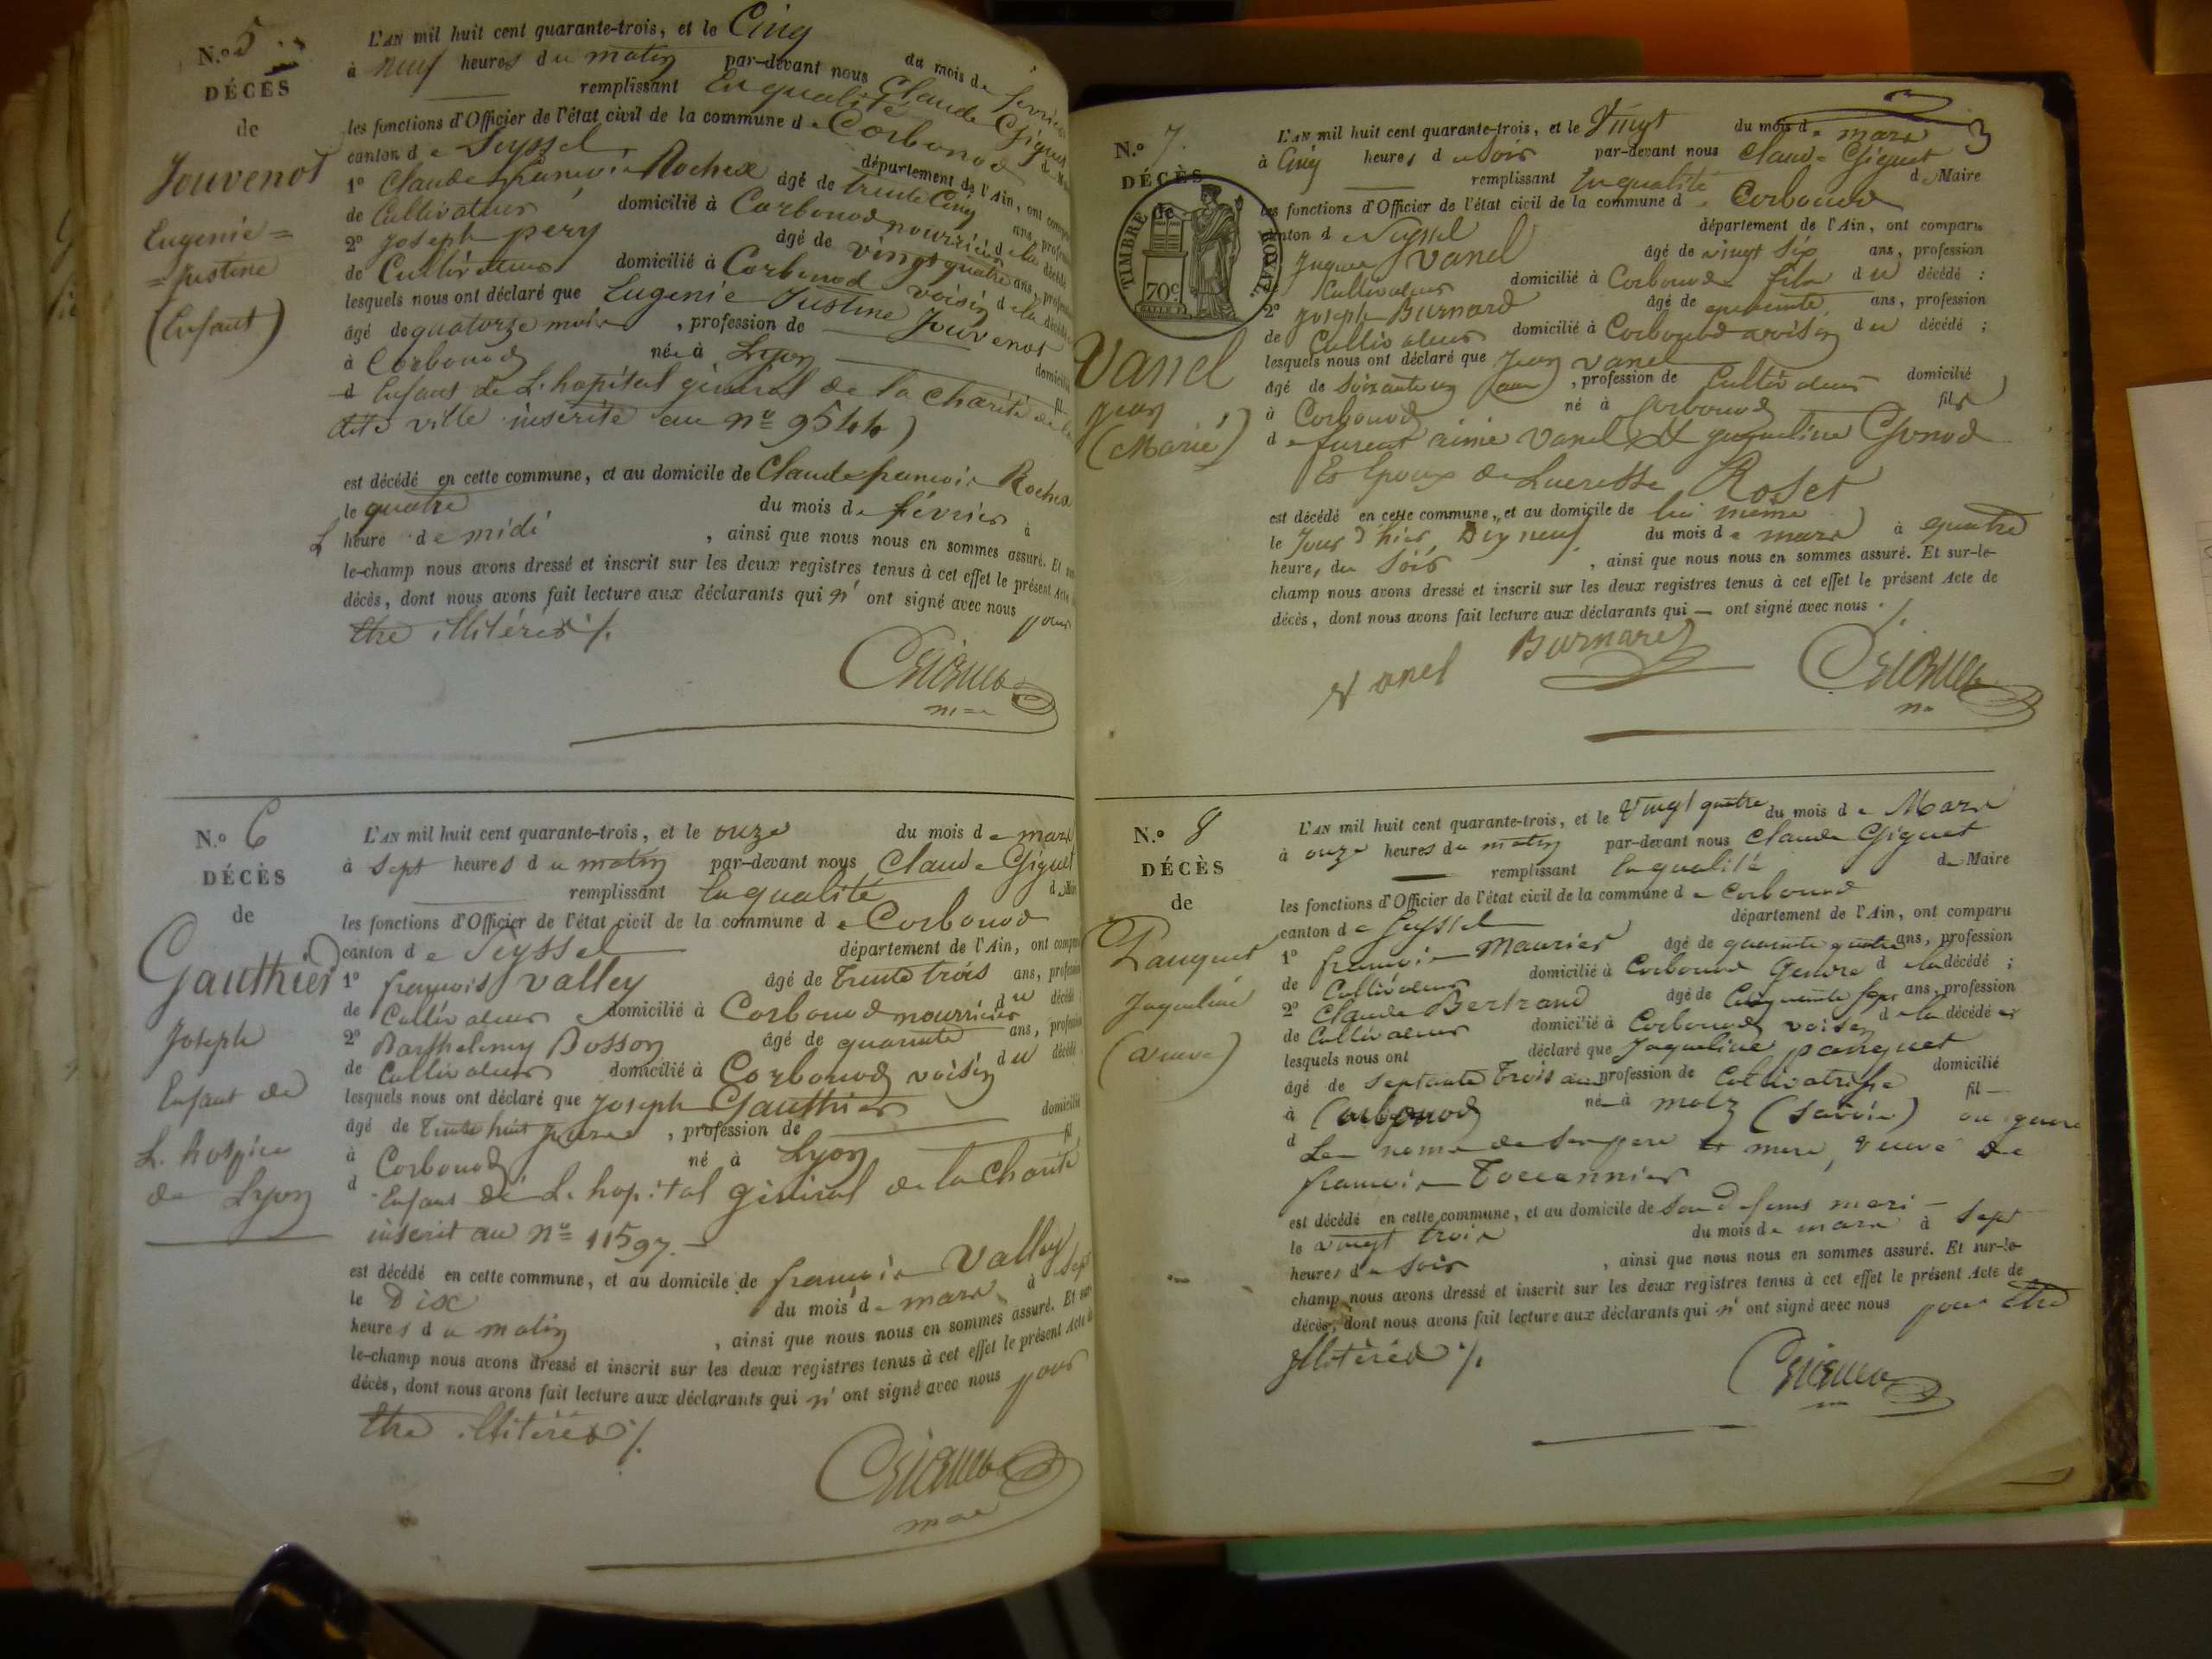 N.º 5
DÉCÈS
de
Jouvenot
Eugenie =
= Justine
(Enfant)
L'AN mil huit cent quarante-trois, et le Cinq du mois de fevrier
à neuf heures du matin par-devant nous Claude Giguet
remplissant En qualité de Maire
les fonctions d'Officier de l'état civil de la commune de Corbonod
canton de Seyssel département de l'Ain, ont comparu
1º Claude françois Rochex âgé de trente Cinq ans, profession
de Cultivateur domicilié à Corbonod nourricier de la décédé
2º Joseph pery âgé de vingt quatre ans, profession
de Cultivateur domicilié à Corbonod voisin de la décédé
lesquels nous ont déclaré que Eugenie Justine Jouvenot
âgé de quatorze mois, profession de domicilié
à Corbonod née à Lyon fil
d Enfant de L'hopital général de la Charité de la
dite ville inscrite au nº 9544)
est décédé en cette commune, et au domicile de Claude francois Rochex
le quatre du mois de février à
L heure de midi, ainsi que nous nous en sommes assuré. Et sur
le-champ nous avons dressé et inscrit sur les deux registres tenus à cet effet le présent Acte
décès, dont nous avons fait lecture aux déclarants qui n' ont signé avec nous pour
être illitérés ./.
Giguet
N.º 6
DÉCÈS
de
Gauthier
Joseph
Enfant de
L. hospice
de Lyon
L'AN mil huit cent quarante-trois, et le onze du mois de mars
à sept heures du matin par-devant nous Claude Giguet
remplissant En qualité de Maire
les fonctions d'Officier de l'état civil de la commune de Corbonod
canton de Seyssel département de l'Ain, ont comparu
1º françois Valley âgé de trente trois ans, profession
de Cultivateur domicilié à Corbonod nourricier du décédé
2º Barthelemy Bosson âgé de quarante ans, profession
de Cultivateur domicilié à Corbonod voisin du décédé
lesquels nous ont déclaré que Joseph Gauthier
âgé de Trente huit jours, profession de domicilié
à Corbonod né à Lyon fil
d Enfant de L. hopital général de la Charité
inscrit au nº 11597. —
est décédé en cette commune, et au domicile de françois Valley
le Dix du mois de mars à Sept
heures du matin, ainsi que nous nous en sommes assuré. Et sur
le-champ nous avons dressé et inscrit sur les deux registres tenus à cet effet le présent Acte de
décès, dont nous avons fait lecture aux déclarants qui n' ont signé avec nous pour
être illitérés ./.
Giguet
N.º 7.
DÉCÈS
de
TIMBRE ROYAL
70c
Vanel
Jean
(Marié)
3
L'AN mil huit cent quarante-trois, et le Vingt du mois de mars
à Cinq heures du soir par-devant nous Claude Giguet
remplissant En qualité de Maire
les fonctions d'Officier de l'état civil de la commune de Corbonod
canton de Seyssel département de l'Ain, ont comparu
Vanel âgé de vingt six ans, profession
Cultivateur domicilié à Corbonod fils du décédé :
2º Joseph Burnard âgé de quarante ans, profession
de Cultivateur domicilié à Corbonod voisin du décédé ;
lesquels nous ont déclaré que Jean Vanel
âgé de soixante un ans, profession de Cultivateur domicilié
à Corbonod né à Corbonod fils
de aimé Vanel et Jaqueline
Et Epoux de Lucresse Roset
est décédé en cette commune, et au domicile de lui même
le Jour d'hier Dix neuf du mois de mars à quatre
heures du Soir, ainsi que nous nous en sommes assuré. Et sur-le-
champ nous avons dressé et inscrit sur les deux registres tenus à cet effet le présent Acte de
décès, dont nous avons fait lecture aux déclarants qui — ont signé avec nous ./.
Vanel Burnard Giguet
N.º 8
DÉCÈS
de
Panguet
Jaqueline
(Veuve)
L'AN mil huit cent quarante-trois, et le Vingt quatre du mois de Mars
à onze heures du matin par-devant nous Claude Giguet
remplissant En qualité de Maire
les fonctions d'Officier de l'état civil de la commune de Corbonod
canton de Seyssel département de l'Ain, ont comparu
1º francois Maurier âgé de quarante quatre ans, profession
de Cultivateur domicilié à Corbonod Gendre de la décédé ;
2º Claude Bertrand âgé de Cinquante sept ans, profession
de Cultivateur domicilié à Corbonod voisin de la décédé
lesquels nous ont déclaré que Jaqueline panguet
âgé de septante trois ans profession de Cultivatrisse domicilié
à Corbonod né à motz (Savoie) fil —
d Les noms de Son pere et mere, Veuve de
francois Toccannier
est décédé en cette commune, et au domicile de Son defunt mari —
le vingt trois du mois de mars à Sept
heures du Soir, ainsi que nous nous en sommes assuré. Et sur-le-
champ nous avons dressé et inscrit sur les deux registres tenus à cet effet le présent Acte de
décès, dont nous avons fait lecture aux déclarants qui n' ont signé avec nous pour être
illitérés ./.
Giguet